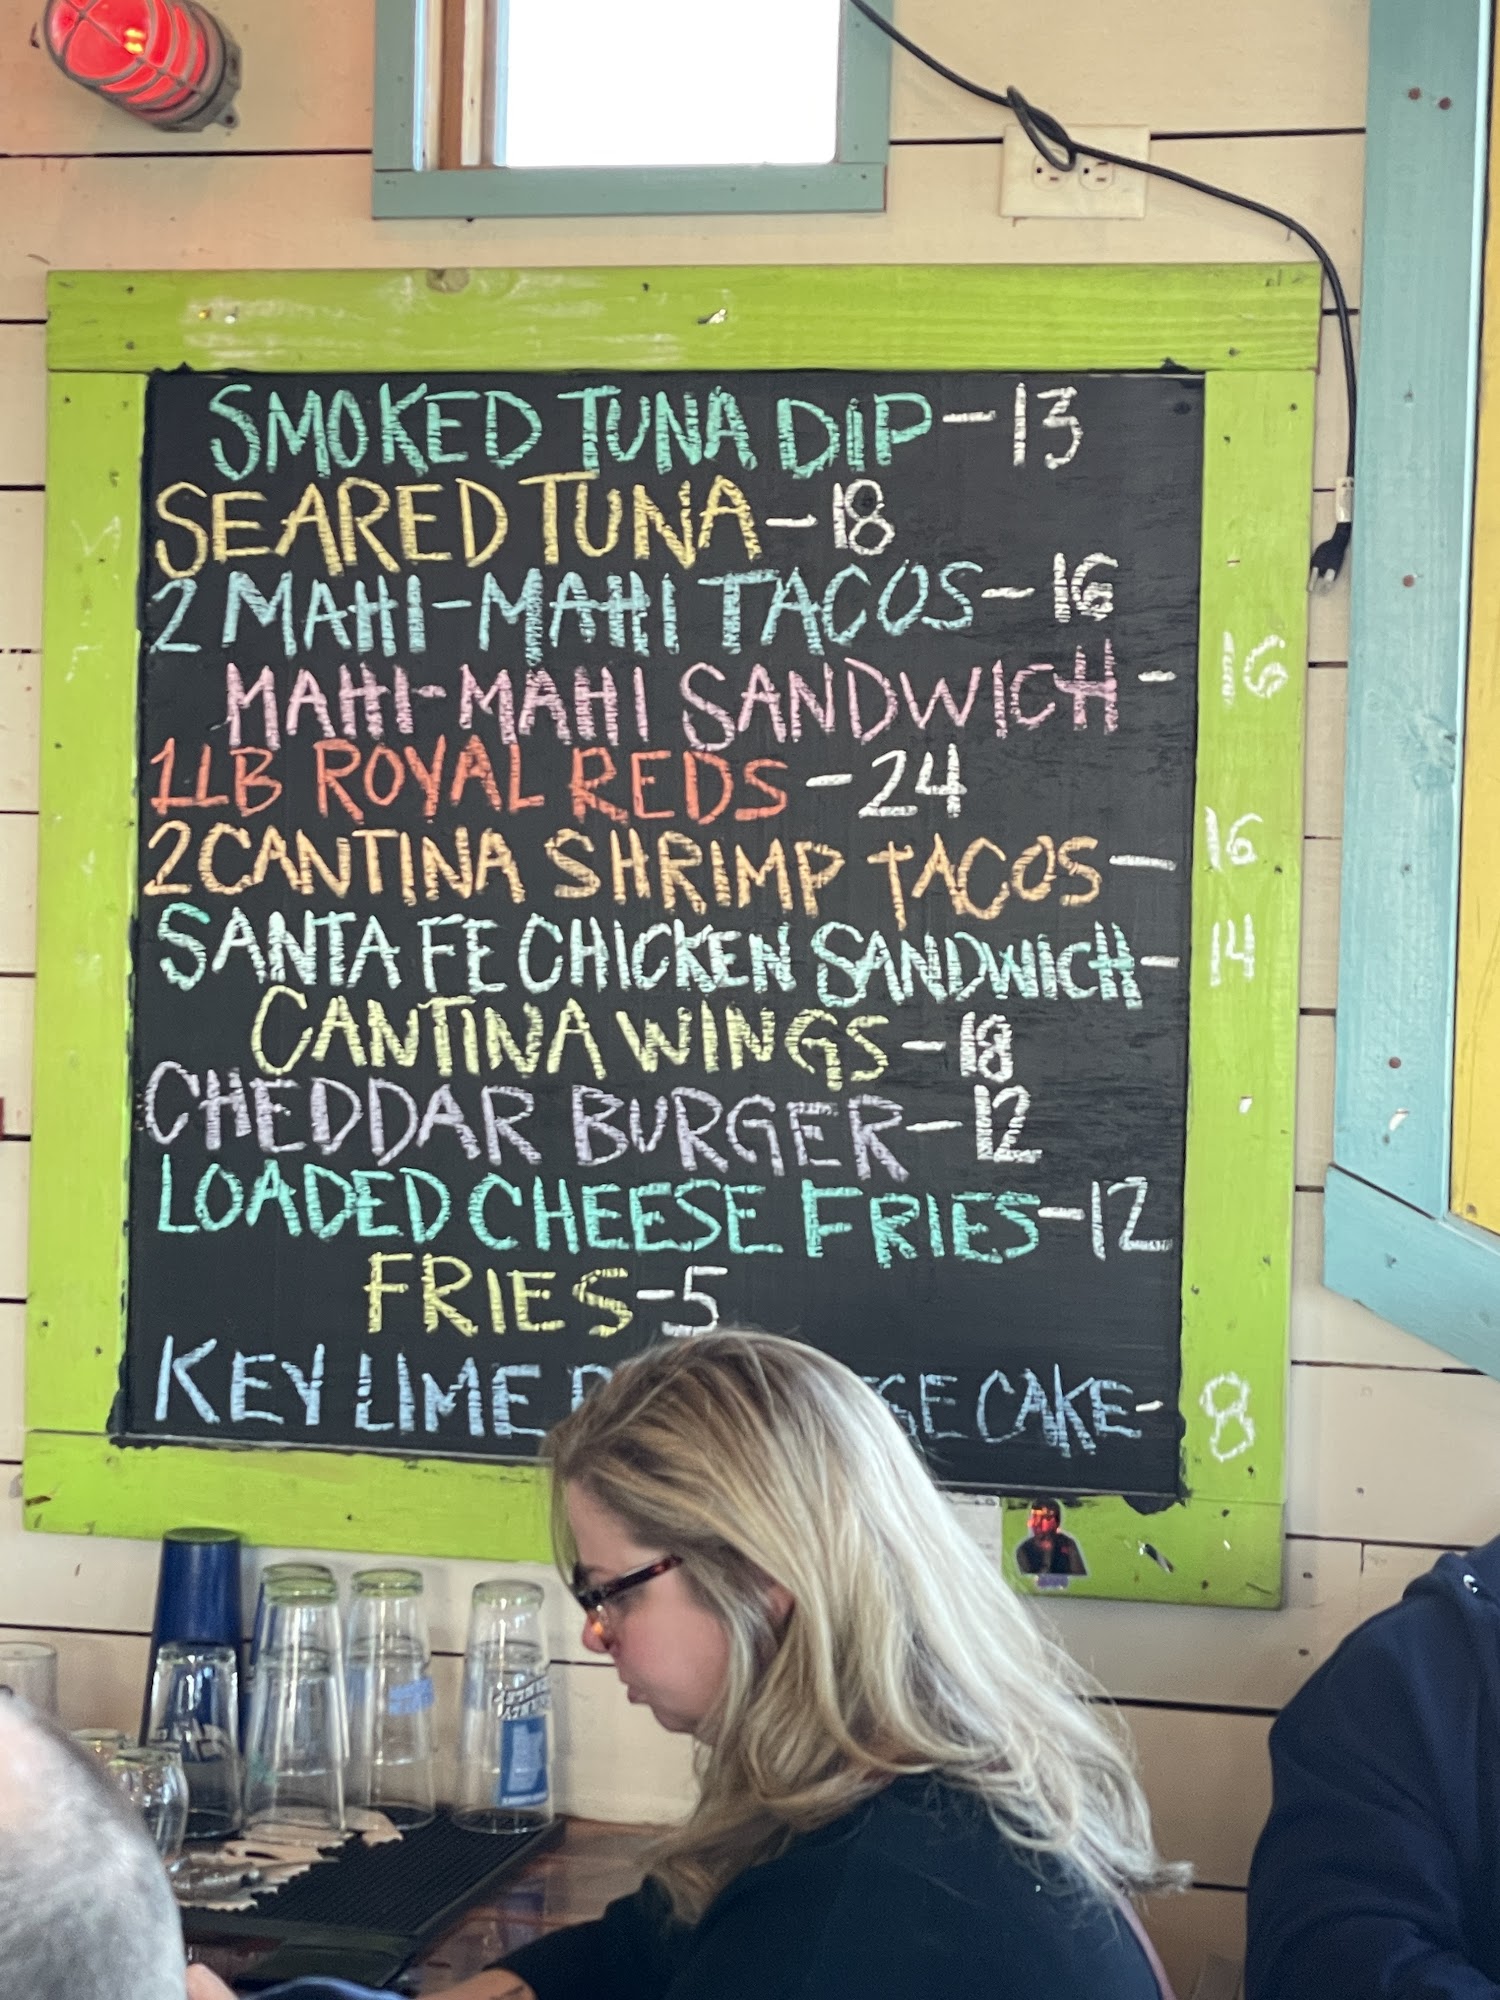 SMOKED TUNA DIP-13
SEARED TUNA-18
2 MAHI-MAHI TACOS-16
MAHI-MAHI SANDWICH-16
1LB ROYAL REDS-24
2 CANTINA SHRIMP TACOS-16
SANTA FE CHICKEN SANDWICH-14
CANTINA WINGS-18
CHEDDAR BURGER-12
LOADED CHEESE FRIES-12
FRIES-5
KEY LIME CAKE-8